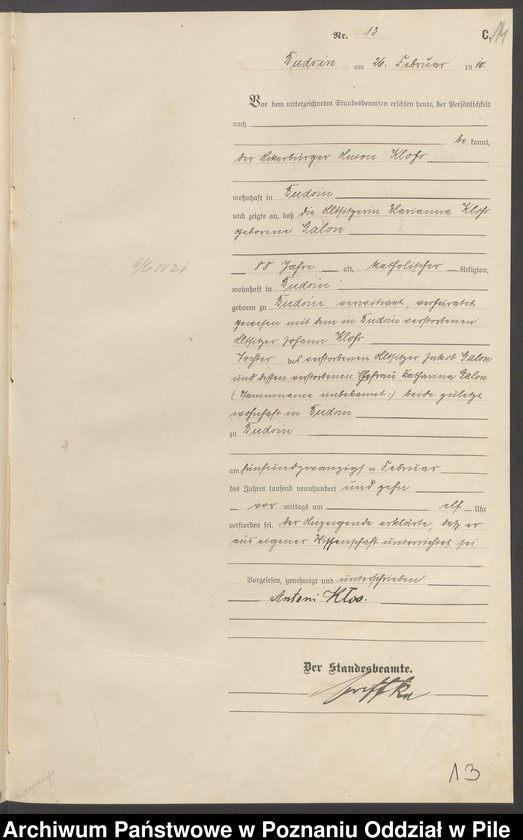 Nr. 13.
C.
Budsin am 26. Februar 1910.
Vor dem unterzeichneten Standesbeamten erschien heute, der Persönlichkeit
nach
be kannt,
der Ackerbürger Anton Klofs
wohnhaft in Budsin
und zeigte an, daß die Altsitzerin Marianna Klofs
geborene Galon
88 Jahre alt, katholischer Religion,
wohnhaft in Budsin
geboren zu Budsin verwitwet, verheiratet
gewesen mit dem in Budsin verstorbenen
Altsitzer Johann Klofs
Tochter des verstorbenen Altsitzer Jakob Galon
und dessen verstorbenen Ehefrau Katharina Galon
(Stammname unbekannt) beide zuletzt
wohnhaft in Budsin
zu Budsin
am fünfundzwanzigsten Februar
des Jahres tausend neunhundert und zehn
vor mittags um elf Uhr
verstorben sei. Der Anzeigende erklärte, daß er
aus eigener Wissenschaft unterrichtet sei
Vorgelesen, genehmigt und unterschrieben
Antoni Kłos.
Der Standesbeamte.
13
Archiwum Państwowe w Poznaniu Oddział w Pile